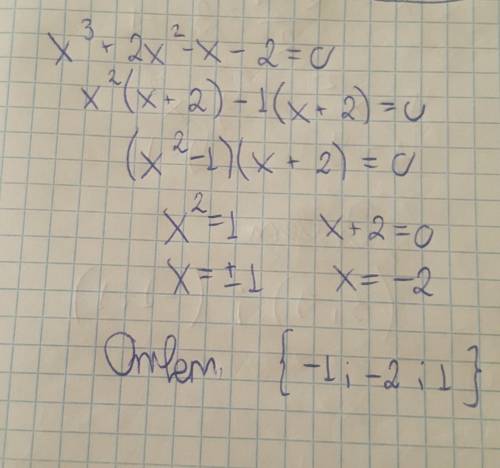 x³ + 2x² - x - 2 = 0
x²(x + 2) - 1(x + 2) = 0
(x² - 1)(x + 2) = 0
x² = 1 x + 2 = 0
x = ±1 x = -2
Ответ. {-1; -2; 1}